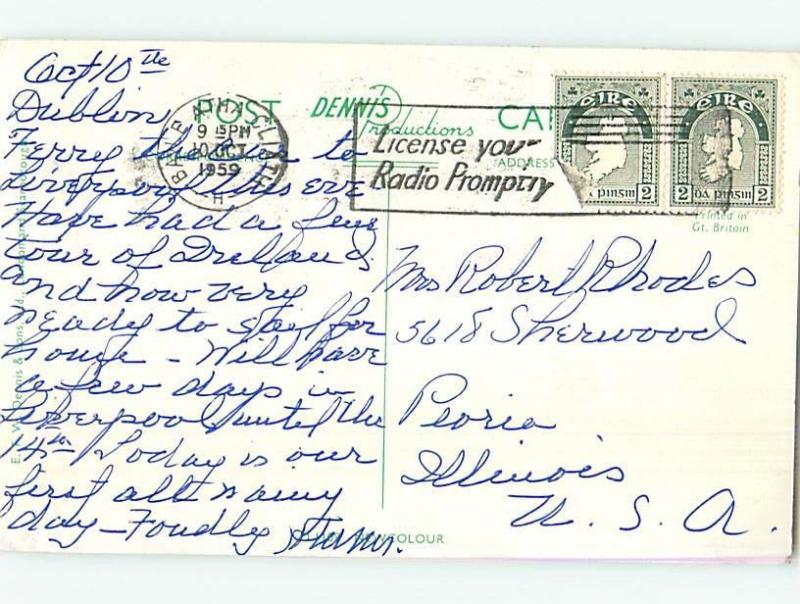 Oct 10th
Dublin
Ferry
to
Liverpool this eve
Have had a fine
tour of Ireland
and now very
ready to sail for
home - Will have
a few days in
Liverpool until the
14th Today is our
first all rainy
day - Fondly
POST CA
DENNIS
Productions
ADDRESS
BAILE ÁTHA CLIATH
9 15PM
10 OCT
1959
License your
Radio Promptly
ÉIRE
2 pinsin 2
ÉIRE
2 dá pinsin 2
Printed in
Gt. Britain
Mrs Robert Rhodes
5618 Sherwood
Peoria
Illinois
U. S. A.
COLOUR